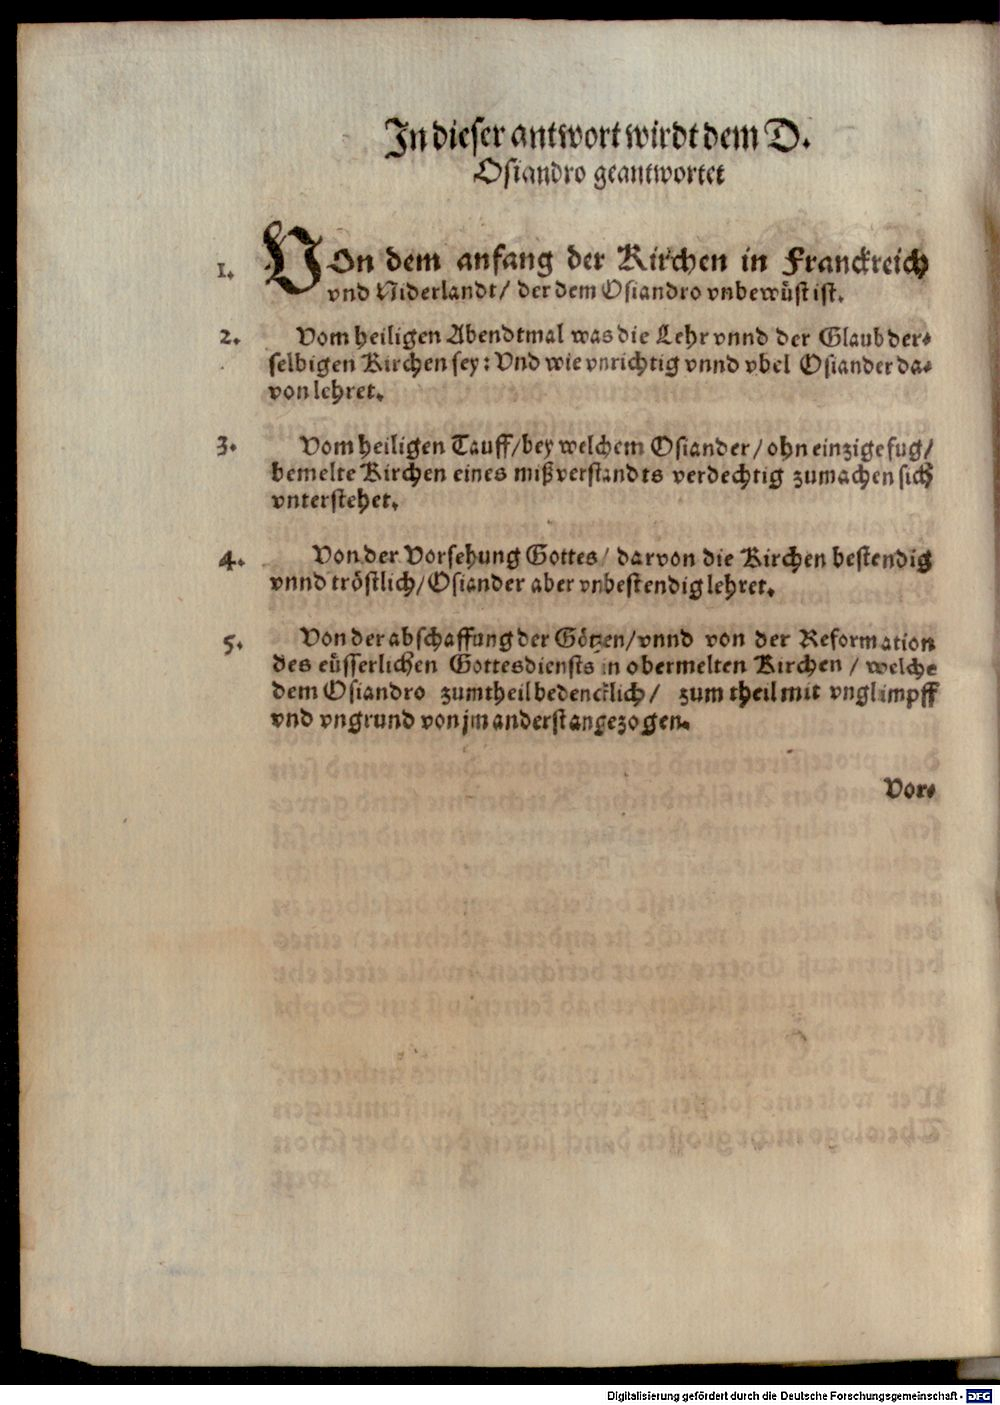 In dieser antwort wirdt dem D.
Osiandro geantwortet
1. VOn dem anfang der Kirchen in Franckreich
vnd Niderlandt/ der dem Osiandro vnbewüst ist.
2. Vom heiligen Abendtmal was die Lehr vnnd der Glaub der⸗
selbigen Kirchen sey: Vnd wie vnrichtig vnnd vbel Osiander da⸗
von lehret.
3. Vom heiligen Tauff/ bey welchem Osiander/ ohn einzige fug/
bemelte Kirchen eines mißverstandts verdechtig zumachen sich
vnterstehet.
4. Von der Vorsehung Gottes/ darvon die Kirchen bestendig
vnnd tröstlich/ Osiander aber vnbestendig lehret.
5. Von der abschaffung der Götzen/ vnnd von der Reformation
des eüsserlichen Gottesdiensts in obermelten Kirchen/ welche
dem Osiandro zumtheil bedencklich/ zum theil mit vnglimpff
vnd vngrund von jm anderst angezogen.
Vor⸗
Digitalisierung gefördert durch die Deutsche Forschungsgemeinschaft - DFG